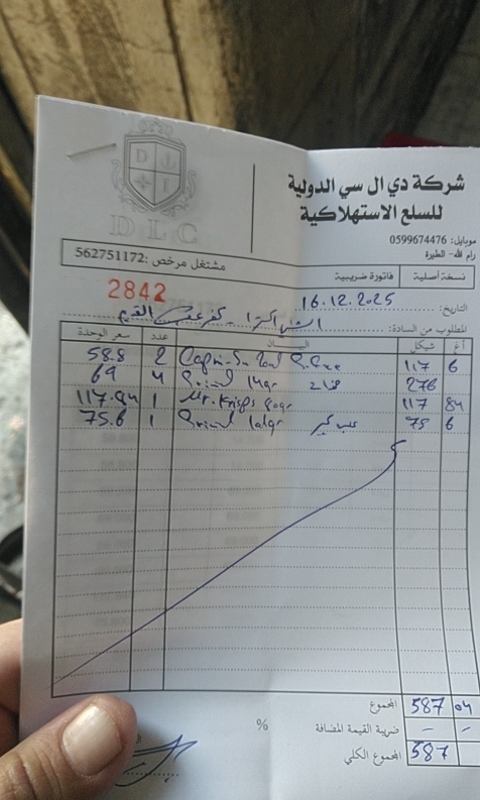 DLC
شركة دي ال سي الدولية
للسلع الاستهلاكية
موبايل: 0599674476
رام الله- الطيرة
مشتغل مرخص :562751172
نسخة أصلية فاتورة ضريبية
2842
التاريخ: 16.12.2025
المطلوب من السادة:
أغ شيكل البيـــــان عدد سعر الوحدة
6 117 2 58.8
276 4 69
84 117 Mr. Krisps 1 117.84
6 75 1 75.6
المجموع 587 04
ضريبة القيمة المضافة % - -
المجموع الكلي 587